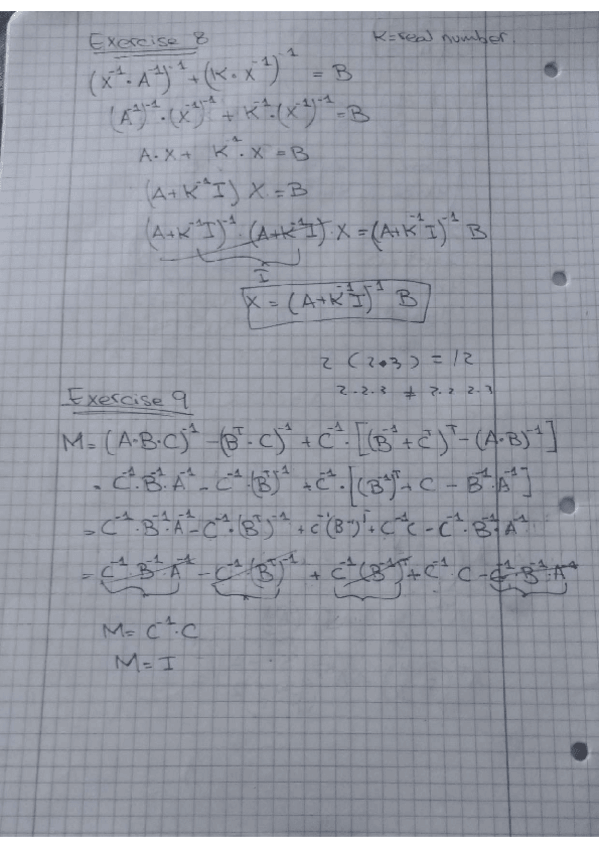 Exercise 8
K=real number.
(X⁻¹·A⁻¹)⁻¹+(K·X⁻¹)⁻¹ = B
(A⁻¹)⁻¹·(X⁻¹)⁻¹ + K⁻¹·(X⁻¹)⁻¹=B
A·X+ K⁻¹·X=B
(A+K⁻¹I) X=B
(A+K⁻¹I)⁻¹·(A+K⁻¹I)·X=(A+K⁻¹I)⁻¹ B
I
X=(A+K⁻¹I)⁻¹ B
2 (2·3) = 12
2·2·3 ≠ 2·2 2·3
Exercise 9
M=(A·B·C)⁻¹-(Bᵀ·C)⁻¹+C⁻¹·[(B⁻¹+Cᵀ)ᵀ-(A·B)⁻¹]
= C⁻¹·B⁻¹·A⁻¹-C⁻¹·(Bᵀ)⁻¹+C⁻¹·[(B⁻¹)ᵀ+C-B⁻¹·A⁻¹]
=C⁻¹·B⁻¹·A⁻¹-C⁻¹·(Bᵀ)⁻¹+C⁻¹(B⁻¹)ᵀ+C⁻¹C-C⁻¹·B⁻¹·A⁻¹
=C⁻¹·B⁻¹·A⁻¹-C⁻¹·(Bᵀ)⁻¹+C⁻¹(B⁻¹)ᵀ+C⁻¹·C-C⁻¹·B⁻¹·A⁻¹
M=C⁻¹·C
M=I